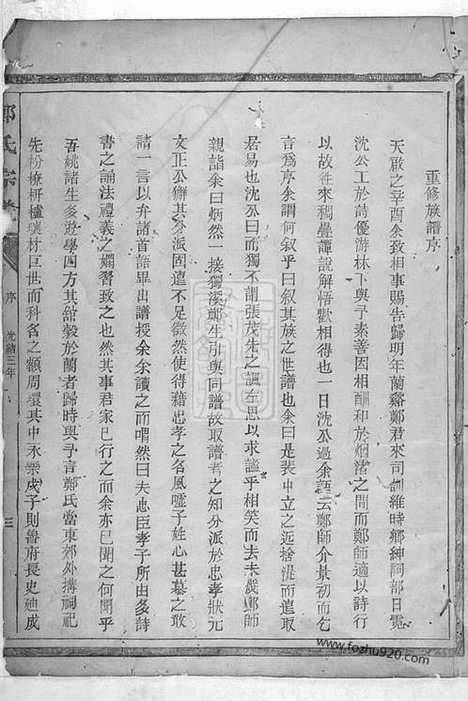 重修族譜序
天啟之辛酉余致相事賜告歸明年蘭谿鄭君來司訓維時鄉紳阿部日霓
沈公工於詩優游林下與予素善因相酬和於烟渚之間而鄭師適以詩行
以故徃來稠疊譚說解悟歡相得也一日沈公過余語云鄭師介景初而乞
言為序余謂何叙乎曰叙其族之世譜也余曰是裴中立之近捨湜而遠取
居易也沈公曰不以謂張茂朱之讓左思以求謐乎相笑而去未幾鄭師
親詣余曰炳然一接獨溪鄭生引與同譜故取譜者之知分派於忠孝狀元
文正公獅其分派固遠不足徵然使得藉忠孝之名風噓子姓心甚墓之敢
請一言以弁諸首語畢出譜授余余讀之而喟然曰夫忠臣孝子所由多詩
書之誦法禮義之嫻習致之也然其事君家已行之而余亦已聞之何聞乎
吾姚諸生多遊學四方其舘穀於蘭者歸時與予言鄭氏當東郊外搆祠祀
先枌橑枅櫨瓌材巨世而科名之額周環其中永樂戊子則魯府長史廸成
鄭氏宗譜
序
光緒三年
三
www.fozhu920.com